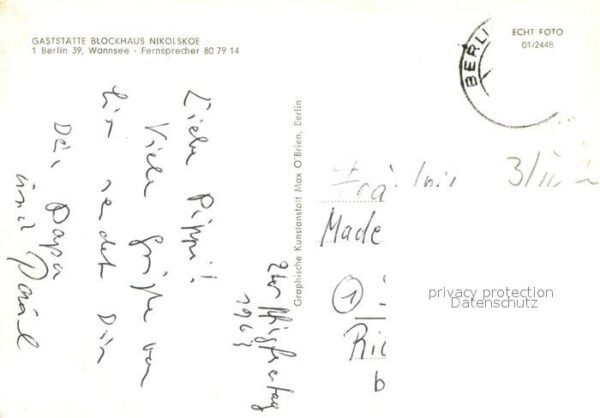 GASTSTÄTTE BLOCKHAUS NIKOLSKOE
1 Berlin 39, Wannsee - Fernsprecher 80 79 14
ECHT FOTO
01/2448
BERLI
Liebe Pippi!
Viele Grüße von
hier sendet Dir
Dein Papa
und
1963
Graphische Kunstanstalt Max O'Brien, Berlin
Fräulein
Made
1
Ric
b
privacy protection
Datenschutz